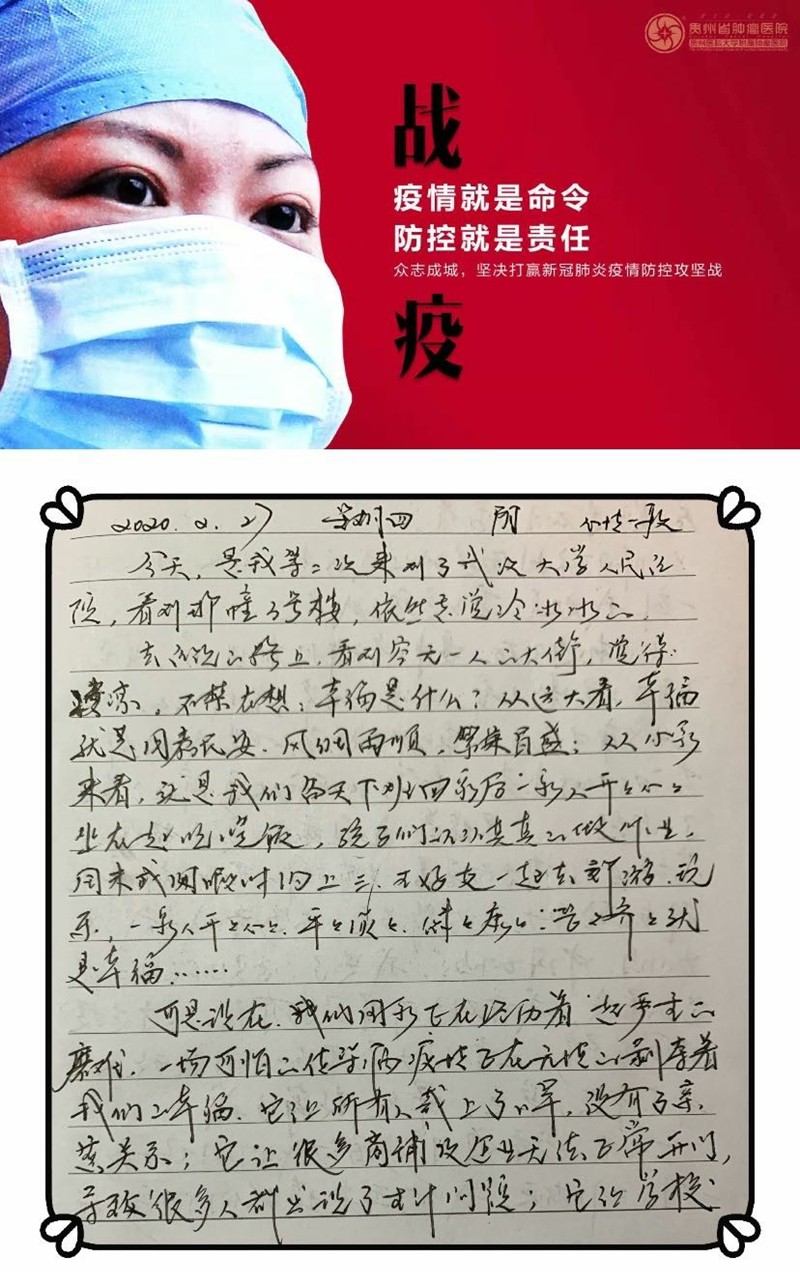 贵州省肿瘤医院
贵州医科大学附属肿瘤医院
战
疫情就是命令
防控就是责任
众志成城，坚决打赢新冠肺炎疫情防控攻坚战
疫
2020.2.27 星期四 阴
今天，是我第二次来到了武汉大学人民医
院，看到那幢3号楼，依然觉得冷冰冰的。
去医院的路上，看到空无一人的大街，觉得
凄凉，不禁在想：幸福是什么？从远大看，幸福
就是国泰民安、风调雨顺，繁荣昌盛；从小家
来看，就是我们每天下班回家后一家人开开心心
坐在一起吃晚饭，孩子们认认真真的做作业，
周末或闲暇时约上三、五好友一起去郊游、玩
乐，一家人开开心心、平平顺顺、健健康康、整整齐齐就
是幸福……
可是现在，我们国家正在经历着一起严重的
磨难，一场可怕的传染病疫情正在无情的剥夺着
我们的幸福，它让所有人戴上了口罩，没有了亲
密关系；它让很多商铺及企业无法正常开门，
导致很多人都出现了生计问题；它让学校